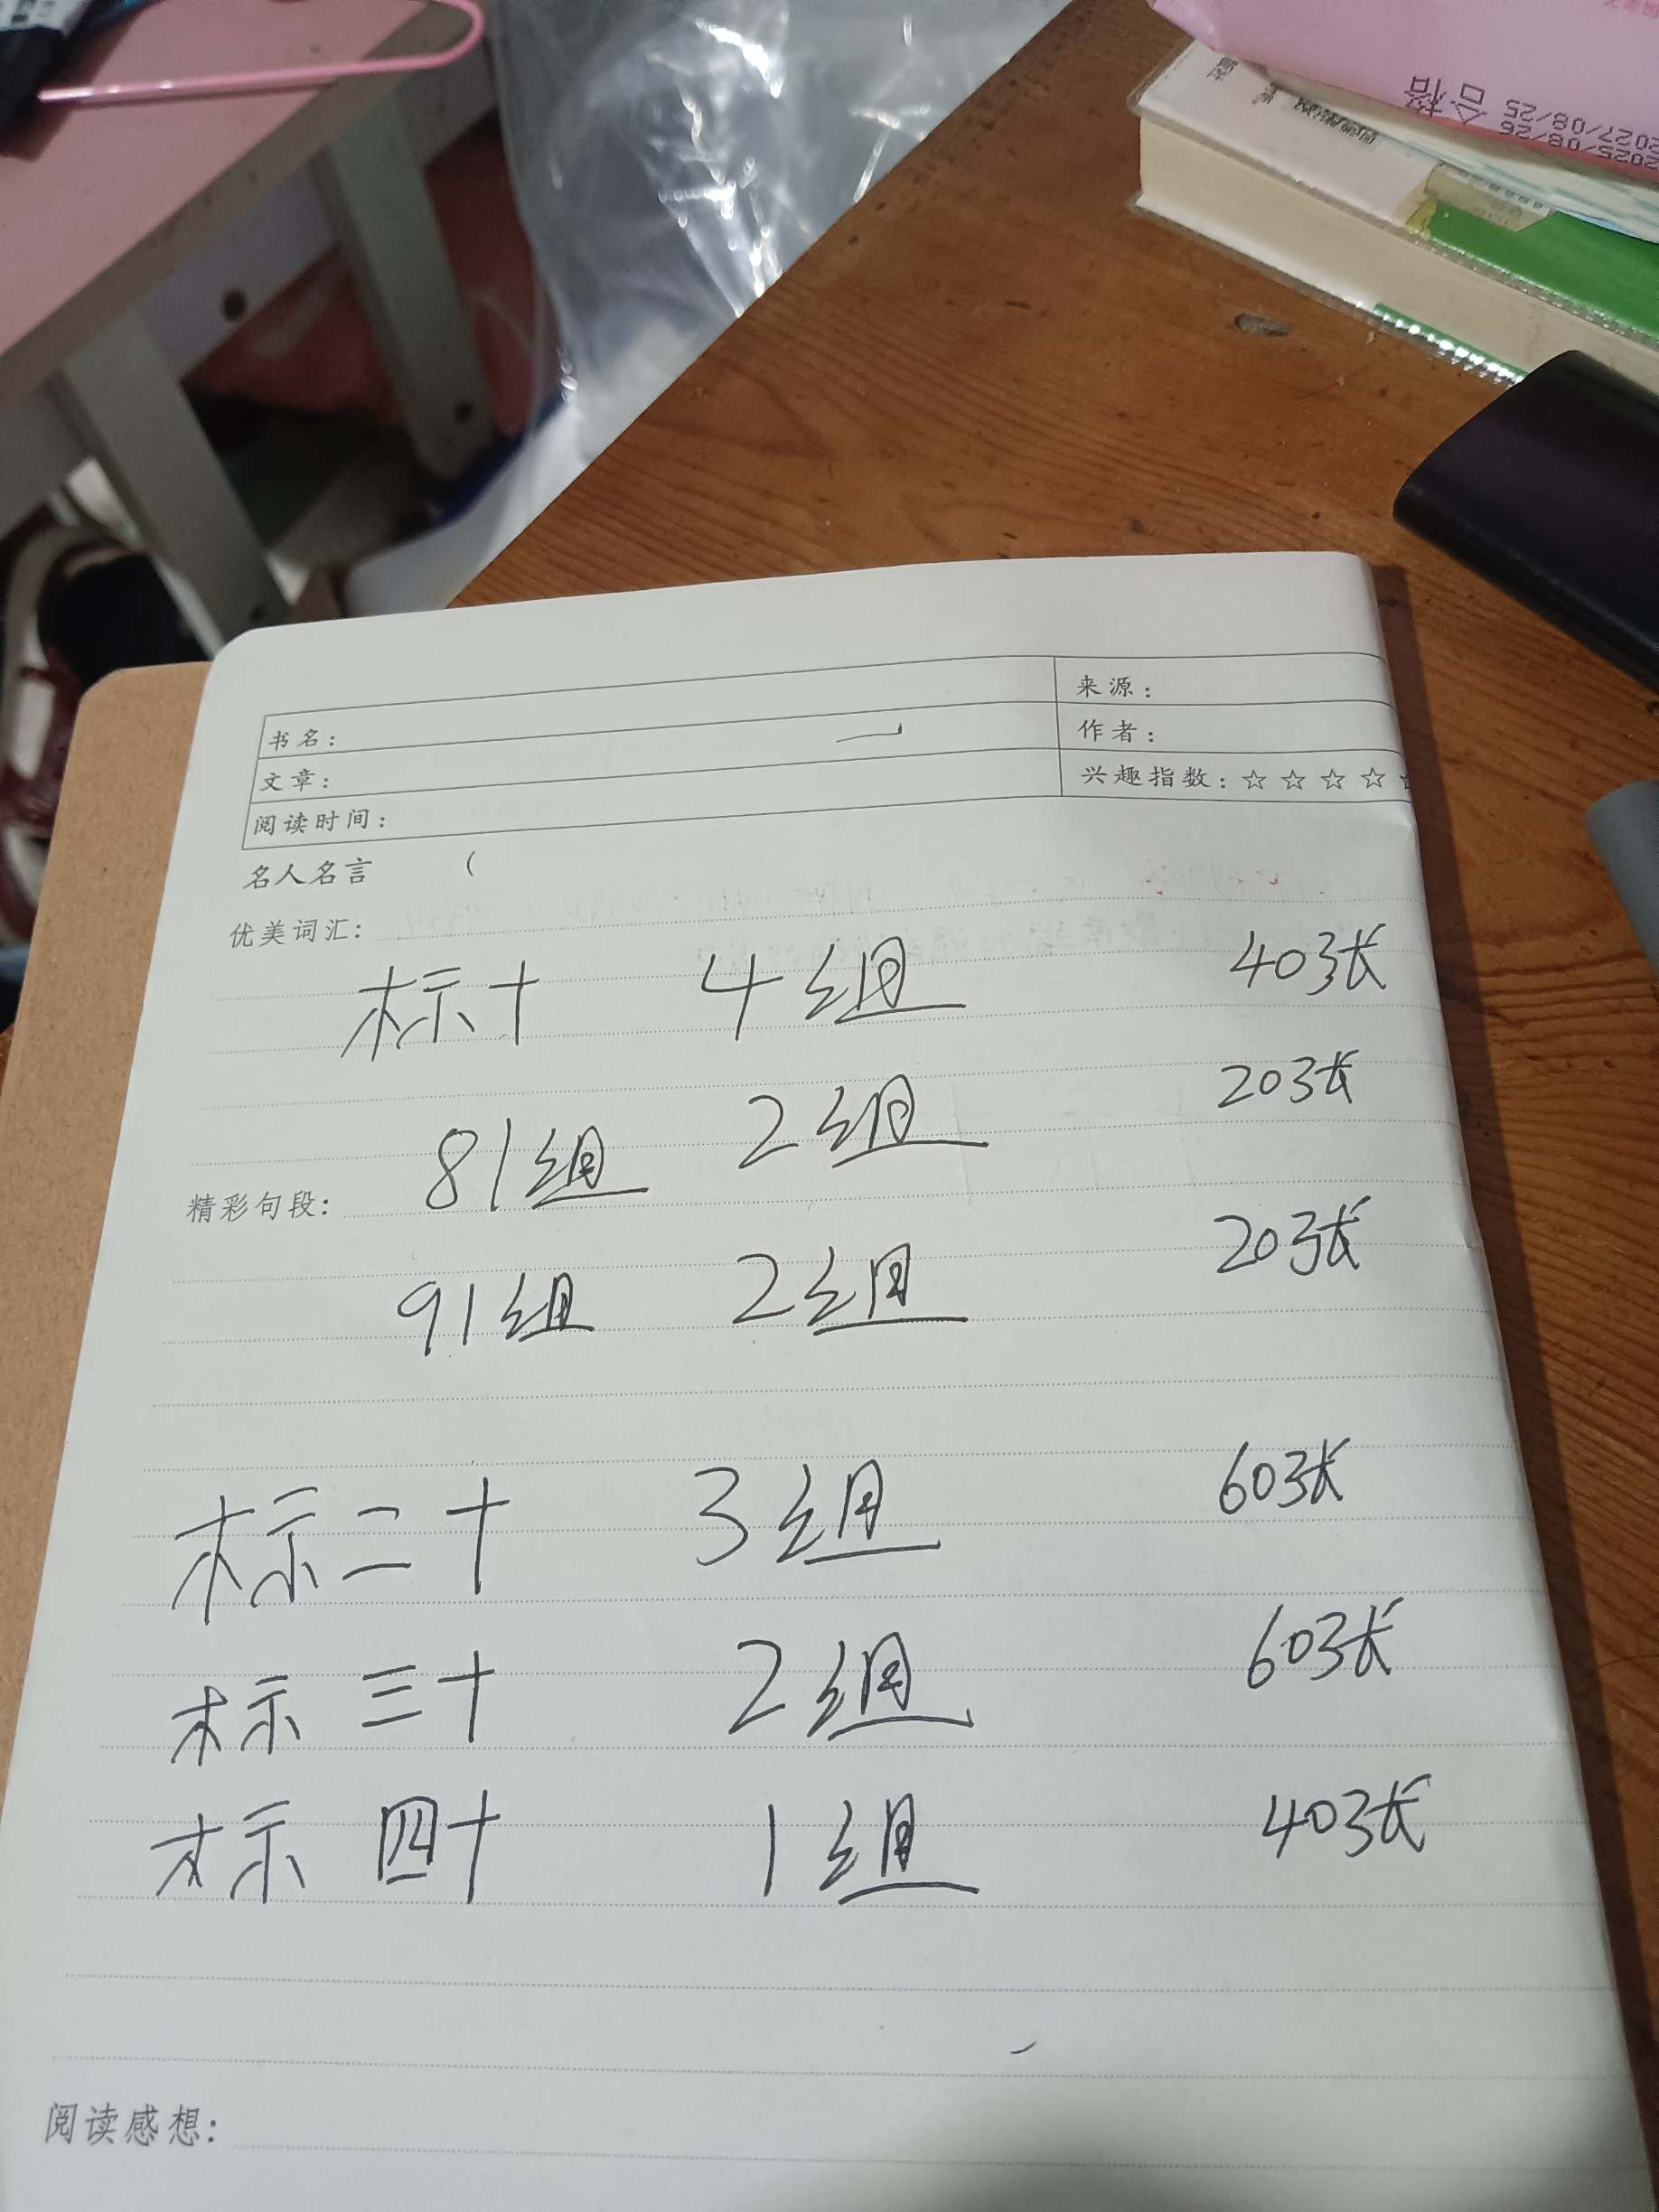 合格
2025/08/26
2027/08/25
书名:
来源:
作者:
文章:
兴趣指数: ☆ ☆ ☆ ☆
阅读时间:
名人名言 (
优美词汇:
标十 4组 40张
81组 2组 20张
精彩句段:
91组 2组 20张
标二十 3组 60张
标 三十 2组 60张
标 四十 1组 40张
阅读感想: